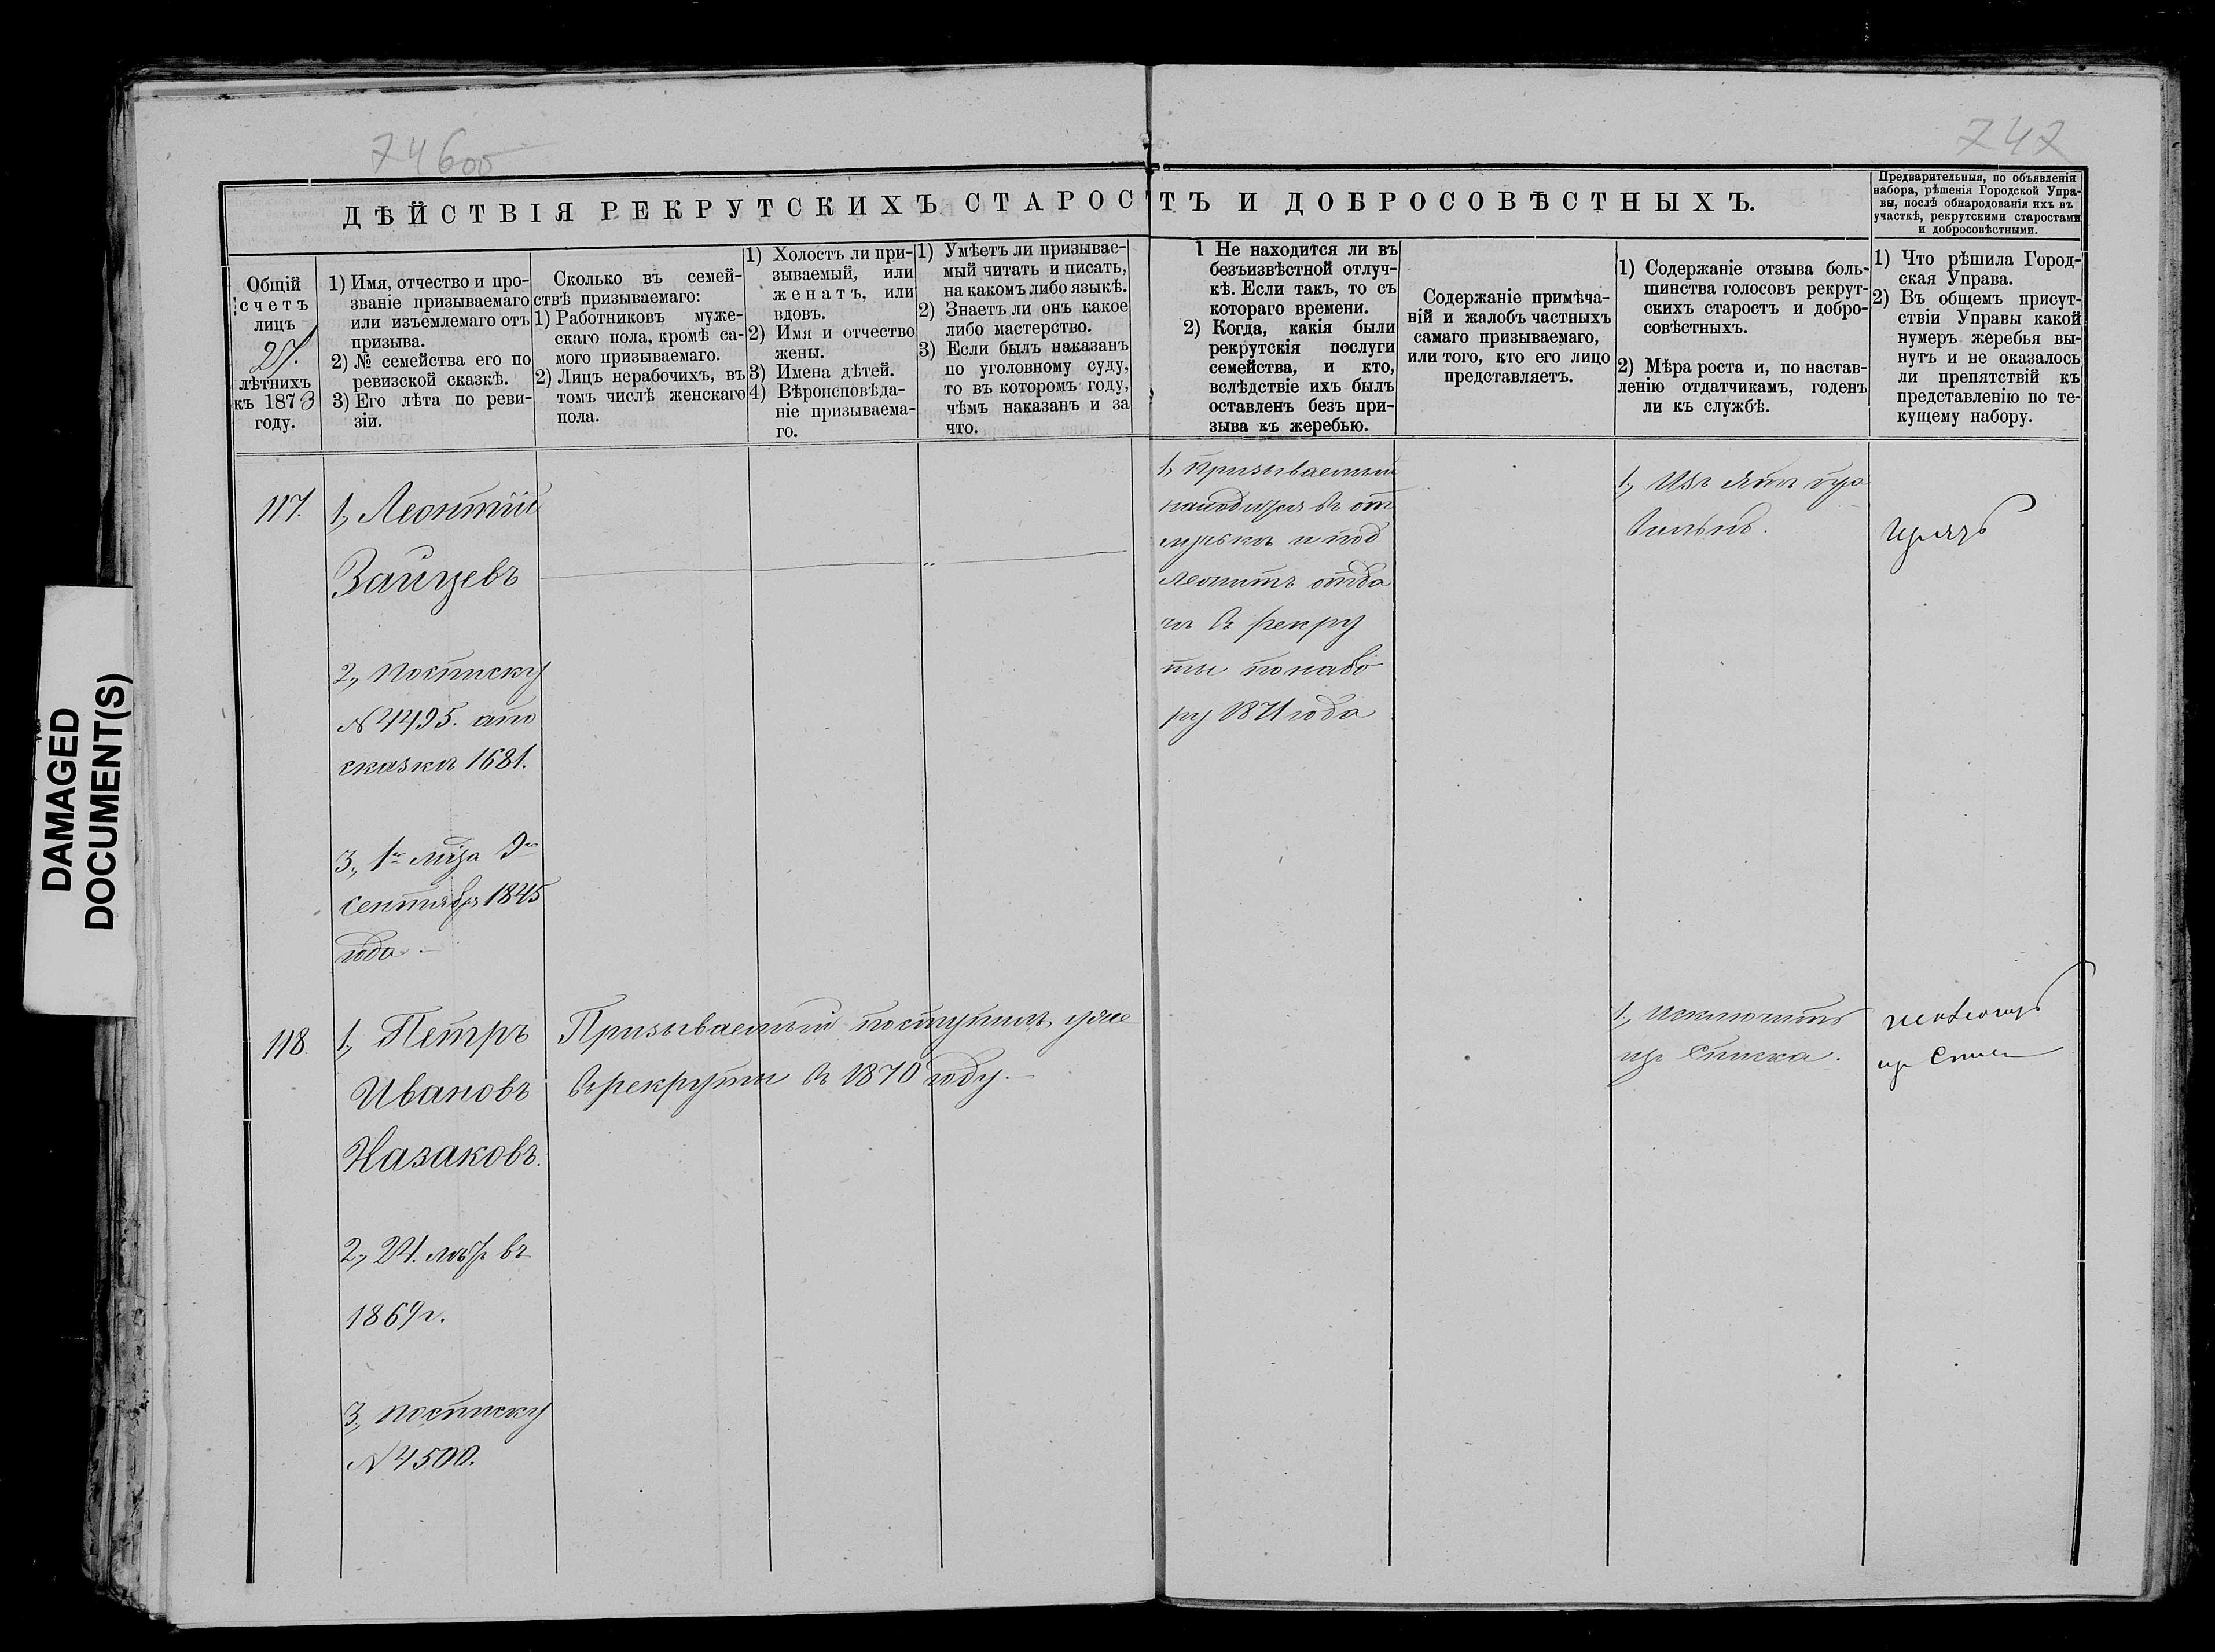 746об
747
ДѢЙСТВІЯ РЕКРУТСКИХЪ СТАРОСТЪ И ДОБРОСОВѢСТНЫХЪ.
Предварительныя, по объявленіи
набора, рѣшенія Городской Упра-
вы, послѣ обнародованія ихъ въ
участкѣ, рекрутскими старостами
и добросовѣстными.
Общій
счетъ
лицъ
27.
лѣтнихъ
къ 1873
году.
1) Имя, отчество и про-
званіе призываемаго
или изъемлемаго отъ
призыва.
2) № семейства его по
ревизской сказкѣ.
3) Его лѣта по реви-
зіи.
Сколько въ семей-
ствѣ призываемаго:
1) Работниковъ муже-
скаго пола, кромѣ са-
мого призываемаго.
2) Лицъ нерабочихъ, въ
томъ числѣ женскаго
пола.
1) Холостъ ли при-
зываемый, или
женатъ, или
вдовъ.
2) Имя и отчество
жены.
3) Имена дѣтей.
4) Вѣроисповѣда-
ніе призываема-
го.
1) Умѣетъ ли призывае-
мый читать и писать,
на какомъ либо языкѣ.
2) Знаетъ ли онъ какое
либо мастерство.
3) Если былъ наказанъ
по уголовному суду,
то въ которомъ году,
чѣмъ наказанъ и за
что.
1 Не находится ли въ
безъизвѣстной отлуч-
кѣ. Если такъ, то съ
котораго времени.
2) Когда, какія были
рекрутскія послуги
семейства, и кто,
вслѣдствіе ихъ былъ
оставленъ безъ при-
зыва къ жеребью.
Содержаніе примѣча-
ній и жалобъ частныхъ
самаго призываемаго,
или того, кто его лицо
представляетъ.
1) Содержаніе отзыва боль-
шинства голосовъ рекрут-
скихъ старостъ и добро-
совѣстныхъ.
2) Мѣра роста и, по настав-
ленію отдатчикамъ, годенъ
ли къ службѣ.
1) Что рѣшила Город-
ская Управа.
2) Въ общемъ присут-
ствіи Управы какой
нумеръ жеребья вы-
нутъ и не оказалось
ли препятствій къ
представленію по те-
кущему набору.
117.
1., Леонтій
Зайцевъ
2., По списку
№ 4495. а по
сказкѣ 1681.
3., 1го лица 9го
сентября 1845
года.
1, Призываемый
находится въ от
лучкѣ и под
лежитъ отда
чѣ въ рекру
ты по набо
ру 1871 года
118.
1., Петръ
Ивановъ
Казаковъ.
2., 24. лѣтъ въ
1869 г.
3., По списку
№ 4500.
Призываемый поступилъ уже
въ рекруты въ 1870 году.
1., Исключить
изъ Списка.